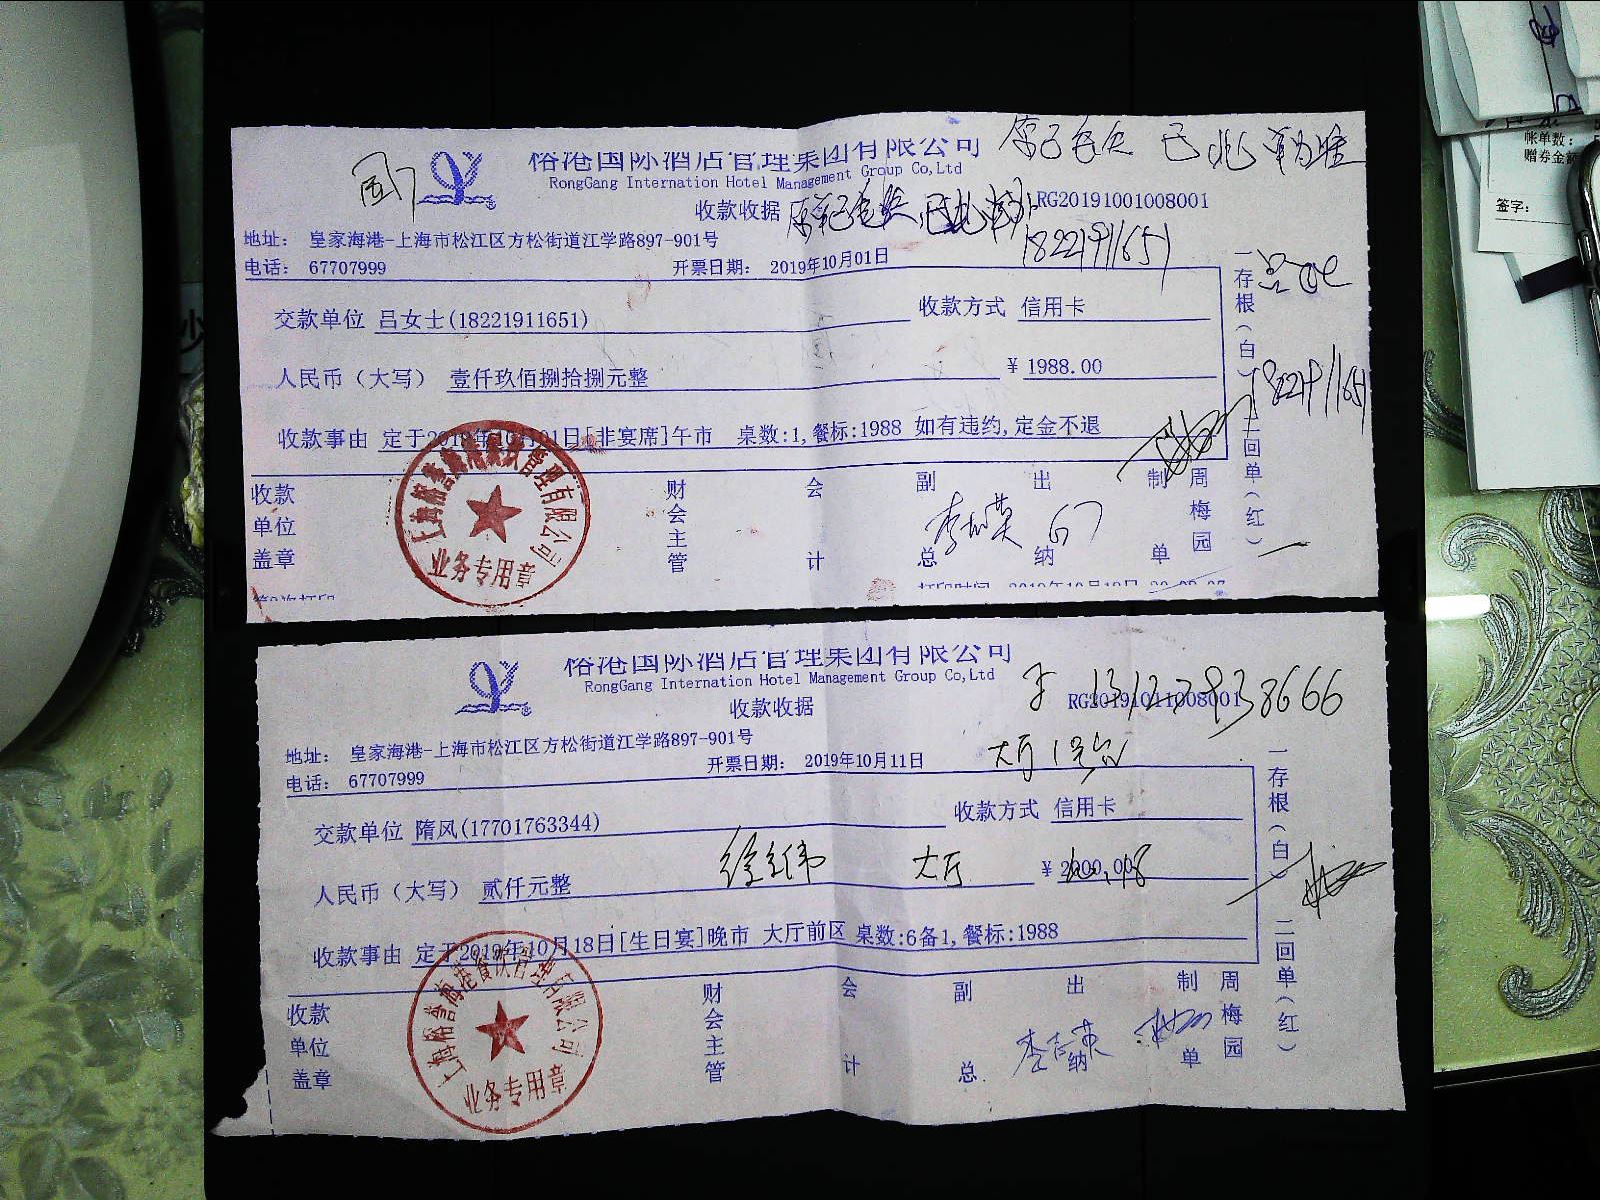 裕港国际酒店管理集团有限公司
RongGang International Hotel Management Group Co,Ltd
收款收据
RG20191001008001
18221911651
地址: 皇家海港-上海市松江区方松街道江学路897-901号
电话: 67707999
开票日期: 2019年10月01日
交款单位 吕女士(18221911651)
收款方式 信用卡
人民币(大写) 壹仟玖佰捌拾捌元整
¥ 1988.00
收款事由 定于2019年10月01日[非宴席]午市 桌数:1,餐标:1988 如有违约,定金不退
收款单位盖章
财会主管
会计
副总
出纳
制单
周梅园
一存根(白)
二回单(红)
18221911651
业务专用章
裕港国际酒店管理集团有限公司
RongGang International Hotel Management Group Co,Ltd
收款收据
RG20191011008001
大厅1号台
地址: 皇家海港-上海市松江区方松街道江学路897-901号
电话: 67707999
开票日期: 2019年10月11日
交款单位 隋风(17701763344)
收款方式 信用卡
大厅
人民币(大写) 贰仟元整
¥ 2000.00
收款事由 定于2019年10月18日[生日宴]晚市 大厅前区 桌数:6备1,餐标:1988
收款单位盖章
财会主管
会计
副总
出纳
制单
周梅园
一存根(白)
二回单(红)
业务专用章
帐单数:
赠券金额
签字: